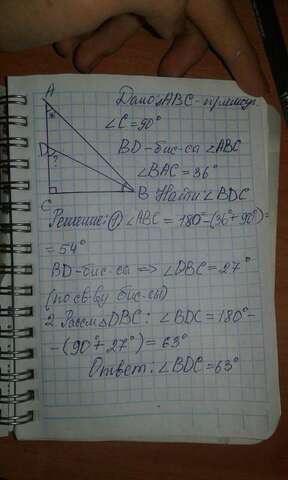 A
Дано: △ABC - прямоуг.
∠C = 90°
BD - бис-са ∠ABC
∠BAC = 36°
D ?
C
B Найти ∠BDC
Решение: ① ∠ABC = 180° - (36° + 90°) =
= 54°
BD - бис-са ⟹ ∠DBC = 27°
(по св-ву бис-сы)
2. Рассм △DBC: ∠BDC = 180° -
- (90° + 27°) = 63°
Ответ: ∠BDC = 63°